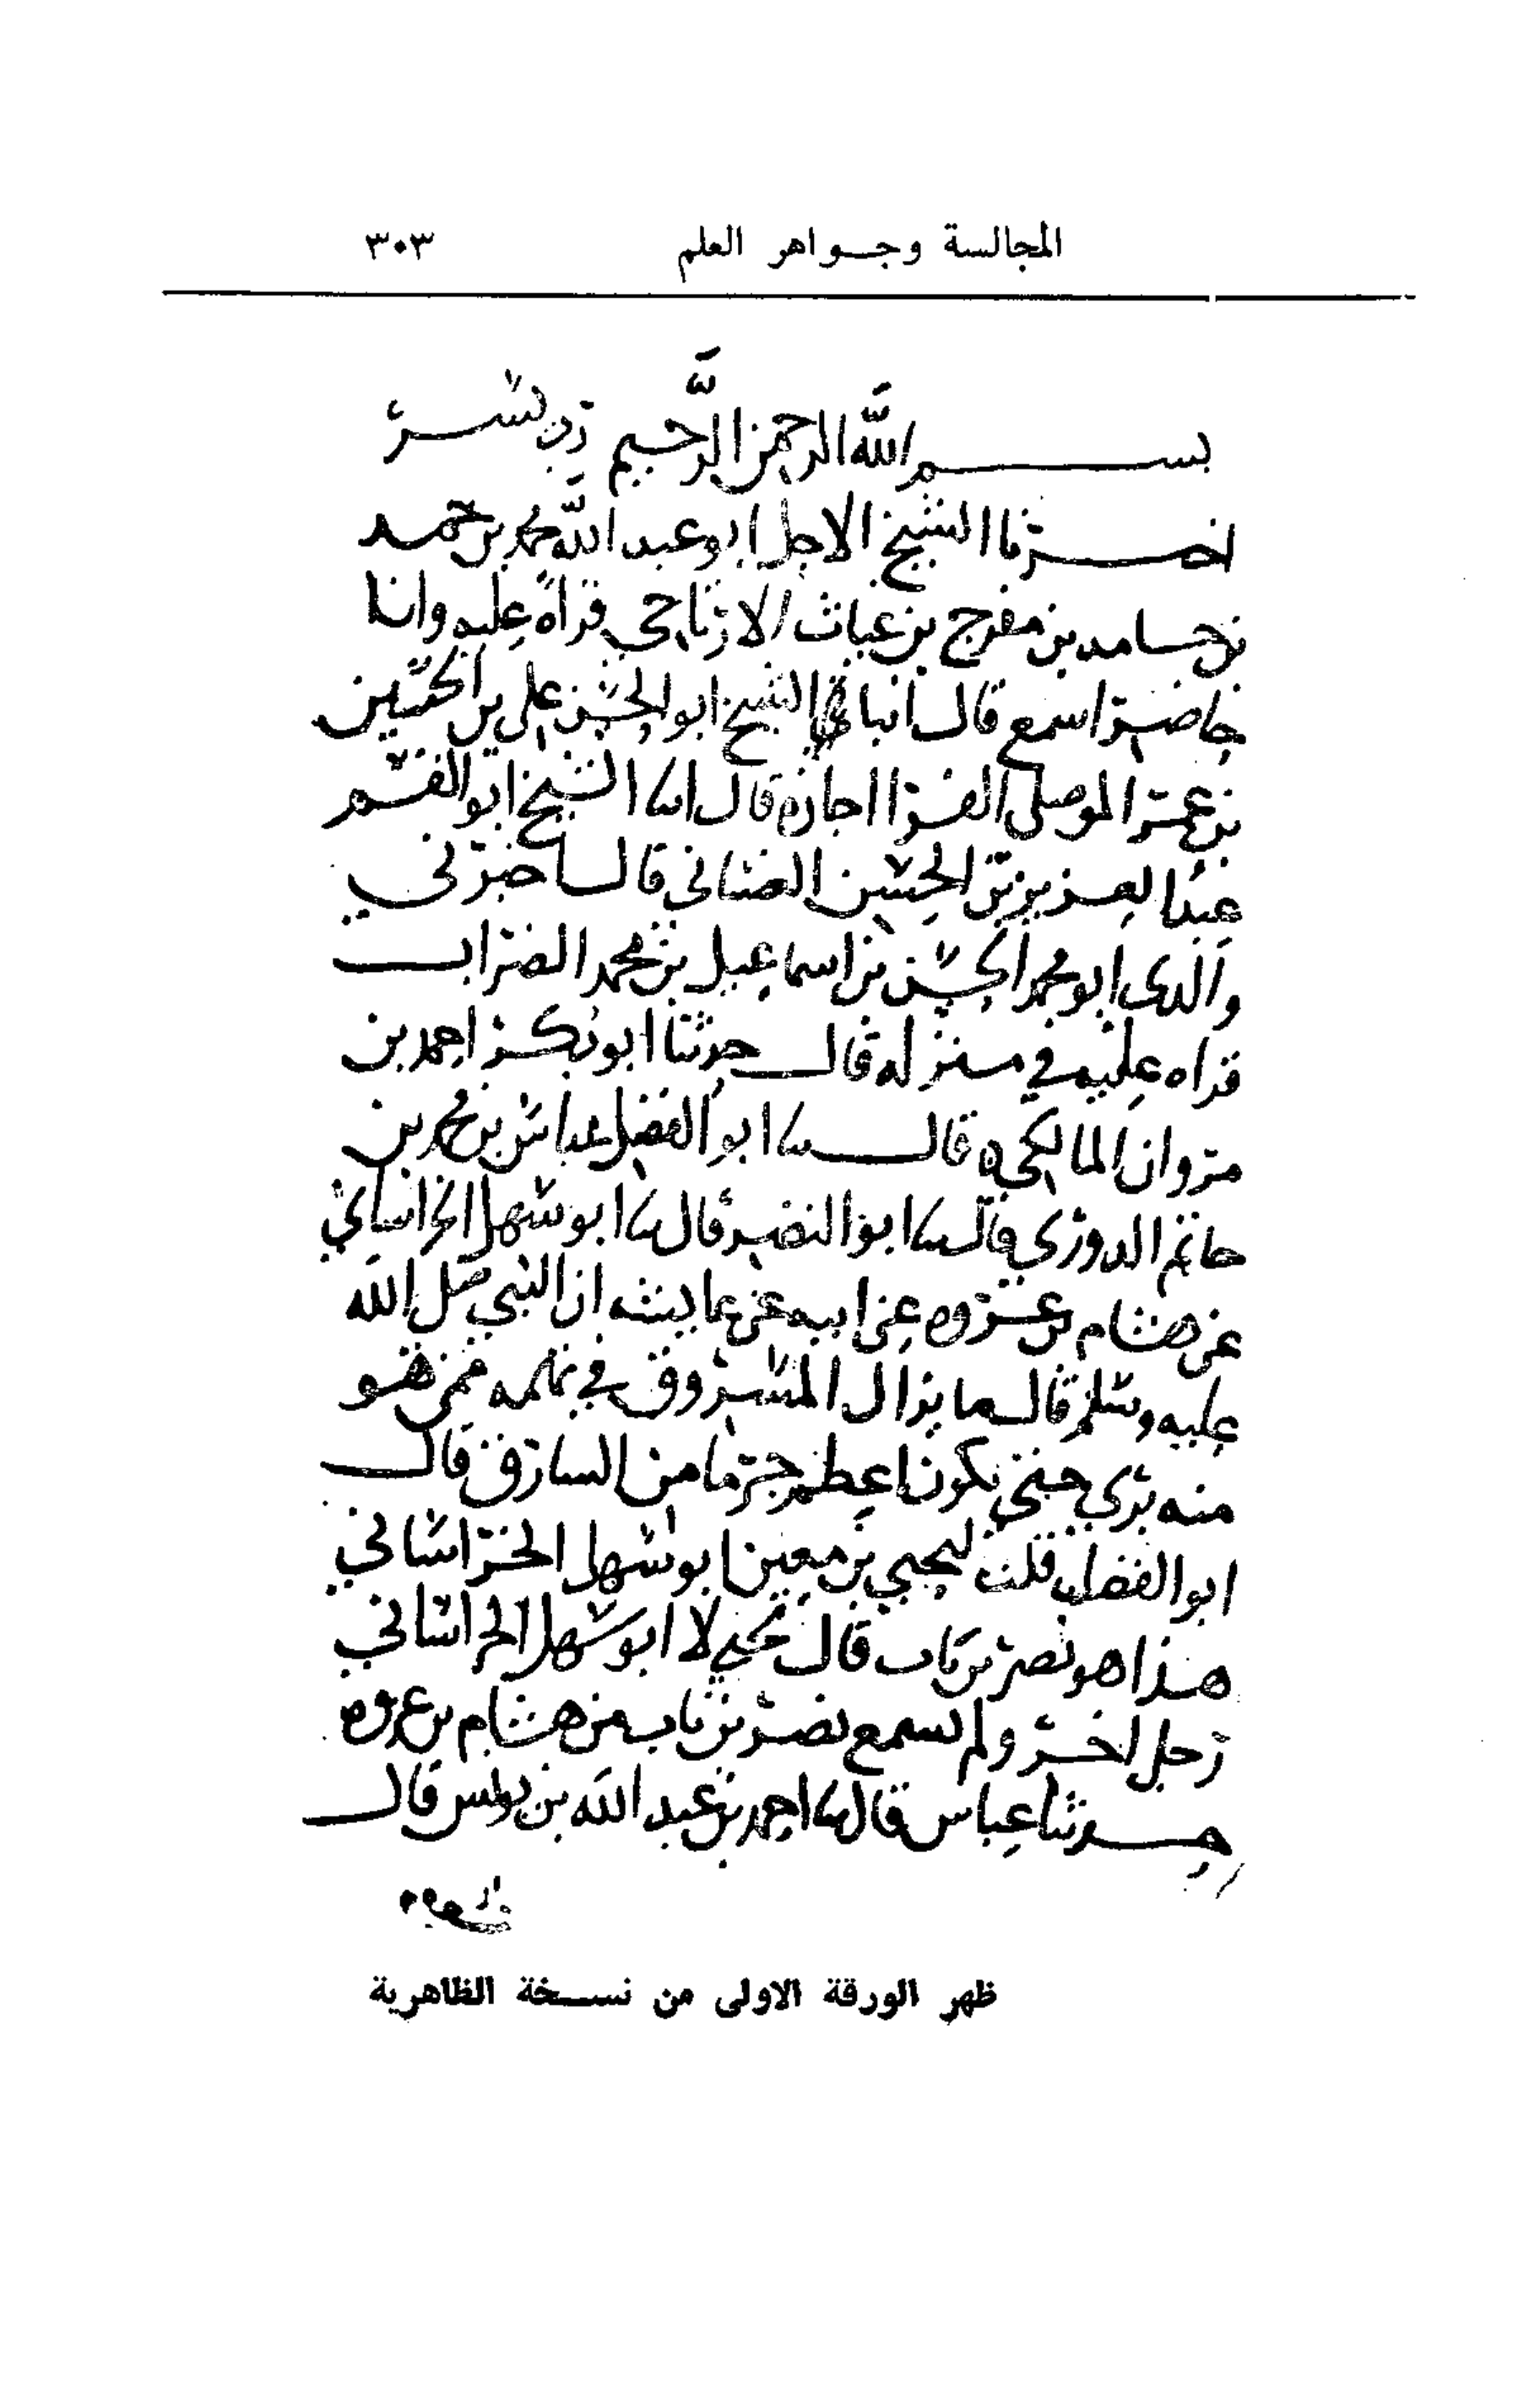 المجالسة وجواهر العلم ٣٠٣
بسم الله الرحمن الرحيم رب يسر
اخبرنا الشيخ الاجل ابو عبد الله محمد بن حمد
بن حامد بن مفرج بن غياث الارتاحي قراة عليه وانا
حاضر اسمع قال انباني الشيخ ابو الحسن علي بن الحسين
بن عمر الموصلي الفرا اجازه قال انا الشيخ ابو القسم
عبد العزيز بن الحسين الضراب قال اخبرني
والدي ابو محمد الحسن بن اسماعيل بن محمد الضراب
قراه عليه في منزله قال حدثنا ابو بكر احمد بن
مروان المالكي قال نا ابو الفضل عباس بن محمد بن
حاتم الدوري قال نا ابو النضر قال نا ابو سهل الخراساني
عن هشام بن عروه عن ابيه عن عايشه ان النبي صلى الله
عليه وسلم قال ما يزال المسروق في تهمه ممن هو
منه بري حتى يكون اعظم جرما من السارق قال
ابو الفضل قلت ليحيي بن معين ابو سهل الخراساني
هذا هو نصر بن باب قال يحيى لا ابو سهل الخراساني
رجل اخر ولم يسمع نصر بن باب من هشام بن عروه
حدثنا عباس قال نا احمد بن عبد الله بن يونس قال
ظهر الورقة الاولى من نسخة الظاهرية